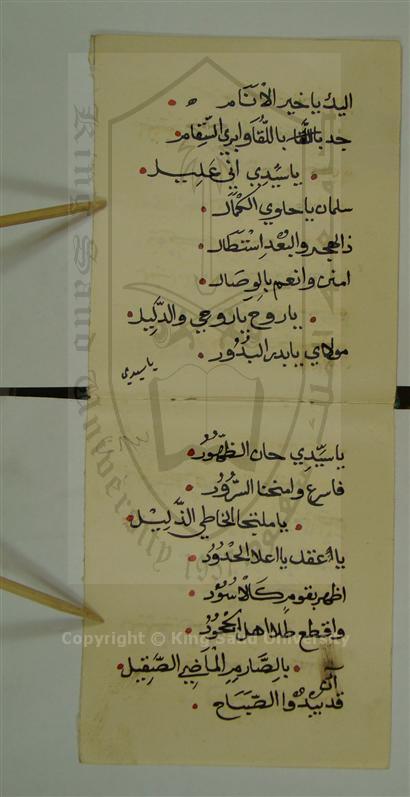 اليك يا خير الأنام
جد باللقا وابري السقام
يا سيدي اني عليل
سلمان يا حاوي الكمال
ذا الهجر والبعد استطال
امنن وانعم بالوصال
يا روح يا روحي والدليل
مولاي يا بدر البدور
يا سيدي
يا سيدي حان الظهور
فاسرع وامنحنا السرور
يا ملتجا الخاطي الذليل
يا اعلا الحدود
اظهر بقوم كالاسود
واقطع طلا اهل الجحود
بالصارم الماضي الصقيل
آن
قد يبدوا الصباح
King Saud University
Copyright © King Saud University